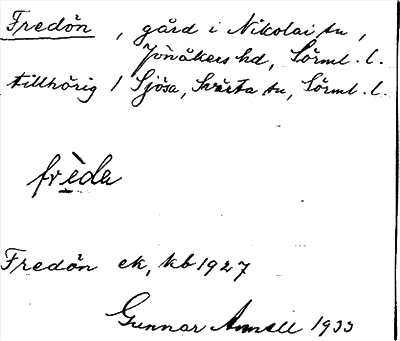 Fredön, gård i Nikolai sn,
Jönåkers hd, Sörml. l.
tillhörig / Sjösa, Svärta sn, Sörml. l.
frèda
Fredön ek, kb 1927
Gunnar 1933